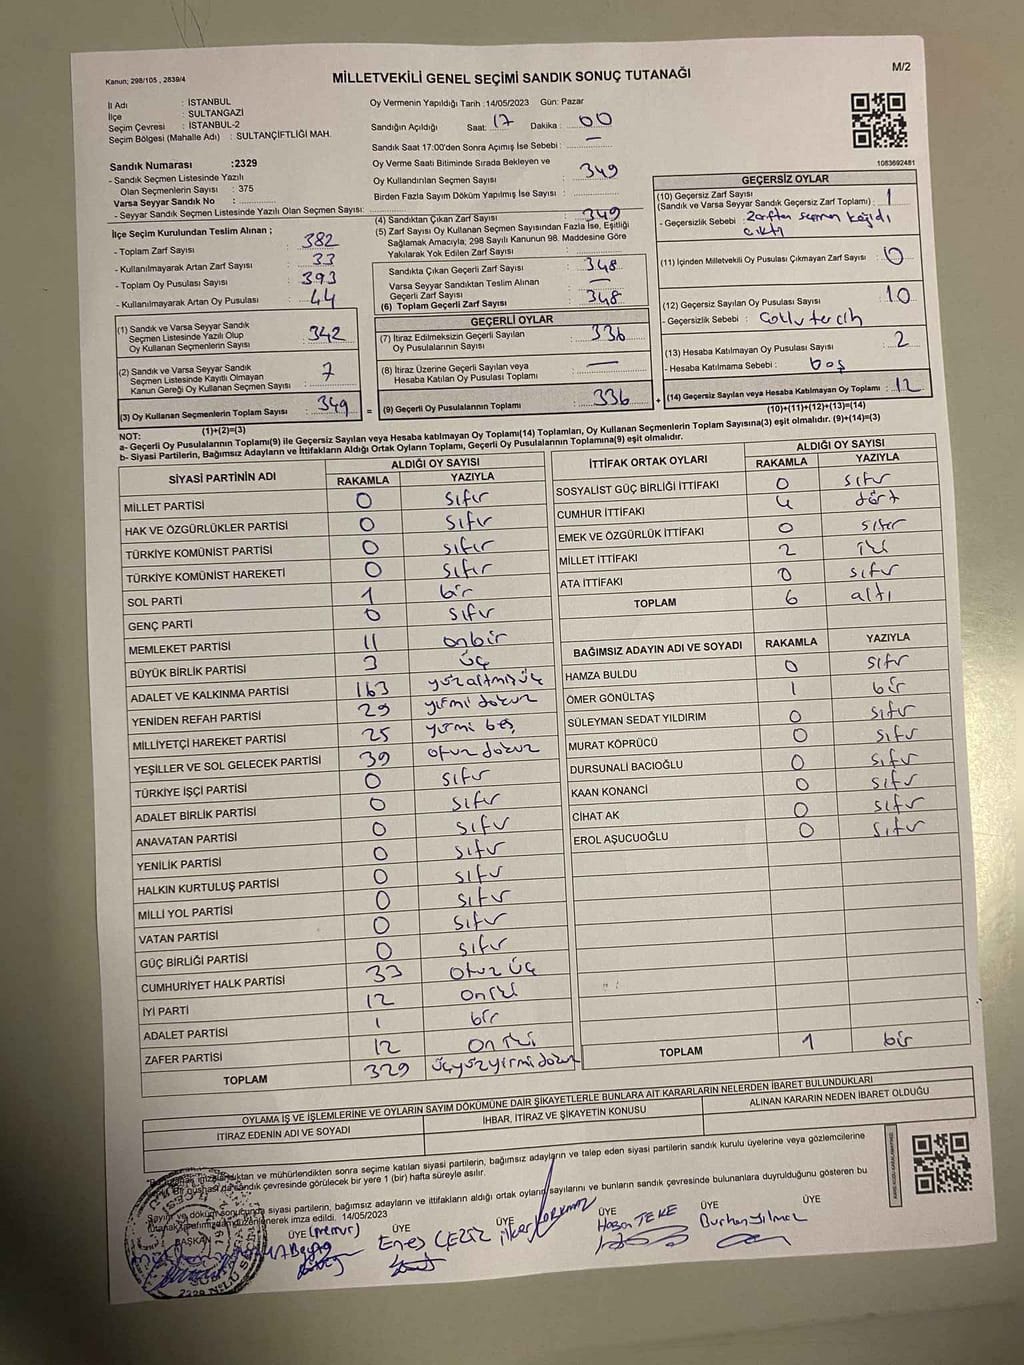 Kanun; 298/105 , 2839/4
MİLLETVEKİLİ GENEL SEÇİMİ SANDIK SONUÇ TUTANAĞI
M/2
İl Adı : İSTANBUL
İlçe : SULTANGAZİ
Seçim Çevresi : İSTANBUL-2
Seçim Bölgesi (Mahalle Adı) : SULTANÇİFTLİĞİ MAH.
Oy Vermenin Yapıldığı Tarih :14/05/2023 Gün: Pazar
Sandığın Açıldığı Saat: 17 Dakika : 00
Sandık Saat 17:00'den Sonra Açımış İse Sebebi : —
Oy Verme Saati Bitiminde Sırada Bekleyen ve
Oy Kullandırılan Seçmen Sayısı : 349
Birden Fazla Sayım Döküm Yapılmış İse Sayısı :
1083692481
Sandık Numarası :2329
- Sandık Seçmen Listesinde Yazılı
Olan Seçmenlerin Sayısı : 375
Varsa Seyyar Sandık No :
- Seyyar Sandık Seçmen Listesinde Yazılı Olan Seçmen Sayısı:
İlçe Seçim Kurulundan Teslim Alınan ;
- Toplam Zarf Sayısı : 382
- Kullanılmayarak Artan Zarf Sayısı : 33
- Toplam Oy Pusulası Sayısı : 393
- Kullanılmayarak Artan Oy Pusulası : 44
(1) Sandık ve Varsa Seyyar Sandık
Seçmen Listesinde Yazılı Olup
Oy Kullanan Seçmenlerin Sayısı : 342
(2) Sandık ve Varsa Seyyar Sandık
Seçmen Listesinde Kayıtlı Olmayan
Kanun Gereği Oy Kullanan Seçmen Sayısı : 7
(3) Oy Kullanan Seçmenlerin Toplam Sayısı : 349
(1)+(2)=(3)
(4) Sandıktan Çıkan Zarf Sayısı : 349
(5) Zarf Sayısı Oy Kullanan Seçmen Sayısından Fazla İse, Eşitliği
Sağlamak Amacıyla; 298 Sayılı Kanunun 98. Maddesine Göre
Yakılarak Yok Edilen Zarf Sayısı :
Sandıkta Çıkan Geçerli Zarf Sayısı : 348
Varsa Seyyar Sandıktan Teslim Alınan
Geçerli Zarf Sayısı : —
(6) Toplam Geçerli Zarf Sayısı : 348
GEÇERLİ OYLAR
(7) İtiraz Edilmeksizin Geçerli Sayılan
Oy Pusulalarının Sayısı : 336
(8) İtiraz Üzerine Geçerli Sayılan veya
Hesaba Katılan Oy Pusulası Toplamı : —
= (9) Geçerli Oy Pusulalarının Toplamı : 336 +
GEÇERSİZ OYLAR
(10) Geçersiz Zarf Sayısı
(Sandık ve Varsa Seyyar Sandık Geçersiz Zarf Toplamı) : 1
- Geçersizlik Sebebi : Zarftan seçmen kağıdı
çıktı
(11) İçinden Milletvekili Oy Pusulası Çıkmayan Zarf Sayısı : 0
(12) Geçersiz Sayılan Oy Pusulası Sayısı : 10
- Geçersizlik Sebebi : Çoklu tercih
(13) Hesaba Katılmayan Oy Pusulası Sayısı : 2
- Hesaba Katılmama Sebebi : boş
(14) Geçersiz Sayılan veya Hesaba Katılmayan Oy Toplamı : 12
(10)+(11)+(12)+(13)=(14)
NOT:
a- Geçerli Oy Pusulalarının Toplamı(9) ile Geçersiz Sayılan veya Hesaba katılmayan Oy Toplamı(14) Toplamları, Oy Kullanan Seçmenlerin Toplam Sayısına(3) eşit olmalıdır. (9)+(14)=(3)
b- Siyasi Partilerin, Bağımsız Adayların ve İttifakların Aldığı Ortak Oyların Toplamı, Geçerli Oy Pusulalarının Toplamına(9) eşit olmalıdır.
SİYASİ PARTİNİN ADI ALDIĞI OY SAYISI
RAKAMLA YAZIYLA
MİLLET PARTİSİ 0 sıfır
HAK VE ÖZGÜRLÜKLER PARTİSİ 0 sıfır
TÜRKİYE KOMÜNİST PARTİSİ 0 sıfır
TÜRKİYE KOMÜNİST HAREKETİ 0 sıfır
SOL PARTİ 1 bir
GENÇ PARTİ 0 sıfır
MEMLEKET PARTİSİ 11 onbir
BÜYÜK BİRLİK PARTİSİ 3 üç
ADALET VE KALKINMA PARTİSİ 163 yüzaltmışüç
YENİDEN REFAH PARTİSİ 29 yirmi dokuz
MİLLİYETÇİ HAREKET PARTİSİ 25 yirmi beş
YEŞİLLER VE SOL GELECEK PARTİSİ 39 otuz dokuz
TÜRKİYE İŞÇİ PARTİSİ 0 sıfır
ADALET BİRLİK PARTİSİ 0 sıfır
ANAVATAN PARTİSİ 0 sıfır
YENİLİK PARTİSİ 0 sıfır
HALKIN KURTULUŞ PARTİSİ 0 sıfır
MİLLİ YOL PARTİSİ 0 sıfır
VATAN PARTİSİ 0 sıfır
GÜÇ BİRLİĞİ PARTİSİ 0 sıfır
CUMHURİYET HALK PARTİSİ 33 otuz üç
İYİ PARTİ 12 on iki
ADALET PARTİSİ 1 bir
ZAFER PARTİSİ 12 on iki
TOPLAM 329 üçyüzyirmidokuz
İTTİFAK ORTAK OYLARI ALDIĞI OY SAYISI
RAKAMLA YAZIYLA
SOSYALİST GÜÇ BİRLİĞİ İTTİFAKI 0 sıfır
CUMHUR İTTİFAKI 4 dört
EMEK VE ÖZGÜRLÜK İTTİFAKI 0 sıfır
MİLLET İTTİFAKI 2 iki
ATA İTTİFAKI 0 sıfır
TOPLAM 6 altı
BAĞIMSIZ ADAYIN ADI VE SOYADI RAKAMLA YAZIYLA
HAMZA BULDU 0 sıfır
ÖMER GÖNÜLTAŞ 1 bir
SÜLEYMAN SEDAT YILDIRIM 0 sıfır
MURAT KÖPRÜCÜ 0 sıfır
DURSUNALİ BACIOĞLU 0 sıfır
KAAN KONANCİ 0 sıfır
CİHAT AK 0 sıfır
EROL AŞUCUOĞLU 0 sıfır
TOPLAM 1 bir
OYLAMA İŞ VE İŞLEMLERİNE VE OYLARIN SAYIM DÖKÜMÜNE DAİR ŞİKAYETLERLE BUNLARA AİT KARARLARIN NELERDEN İBARET BULUNDUKLARI
İTİRAZ EDENİN ADI VE SOYADI İHBAR, İTİRAZ VE ŞİKAYETİN KONUSU ALINAN KARARIN NEDEN İBARET OLDUĞU
mühürlendikten sonra seçime katılan siyasi partilerin, bağımsız adayların ve talep eden siyasi partilerin sandık kurulu üyelerine veya gözlemcilerine
sandık çevresinde görülecek bir yere 1 (bir) hafta süreyle asılır.
Sayım ve döküm sonucunda siyasi partilerin, bağımsız adayların ve ittifakların aldığı ortak oyların sayılarını ve bunların sandık çevresinde bulunanlara duyrulduğunu gösteren bu
imza edildi. 14/05/2023
BAŞKAN ÜYE (memur) ÜYE ÜYE ÜYE ÜYE ÜYE
Enes ÇEZİZ ilker KORKMAZ Hasan TEKE Burhan Yılmaz